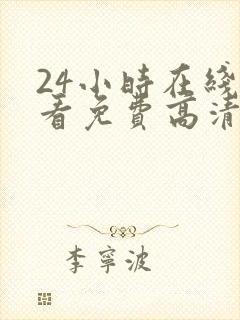 24小時在綫
看免費高清
李寧波